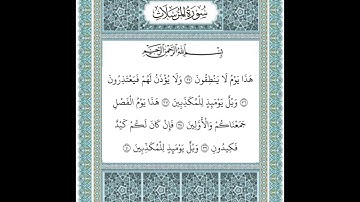 سُورَةُ المُرْسَلَاتِ
بِسْمِ اللَّهِ الرَّحْمَٰنِ الرَّحِيمِ
هَٰذَا يَوْمُ لَا يَنطِقُونَ ٣٥ وَلَا يُؤْذَنُ لَهُمْ فَيَعْتَذِرُونَ
٣٦ وَيْلٌ يَوْمَئِذٍ لِّلْمُكَذِّبِينَ ٣٧ هَٰذَا يَوْمُ الْفَصْلِ
جَمَعْنَاكُمْ وَالْأَوَّلِينَ ٣٨ فَإِن كَانَ لَكُمْ كَيْدٌ
فَكِيدُونِ ٣٩ وَيْلٌ يَوْمَئِذٍ لِّلْمُكَذِّبِينَ ٤٠